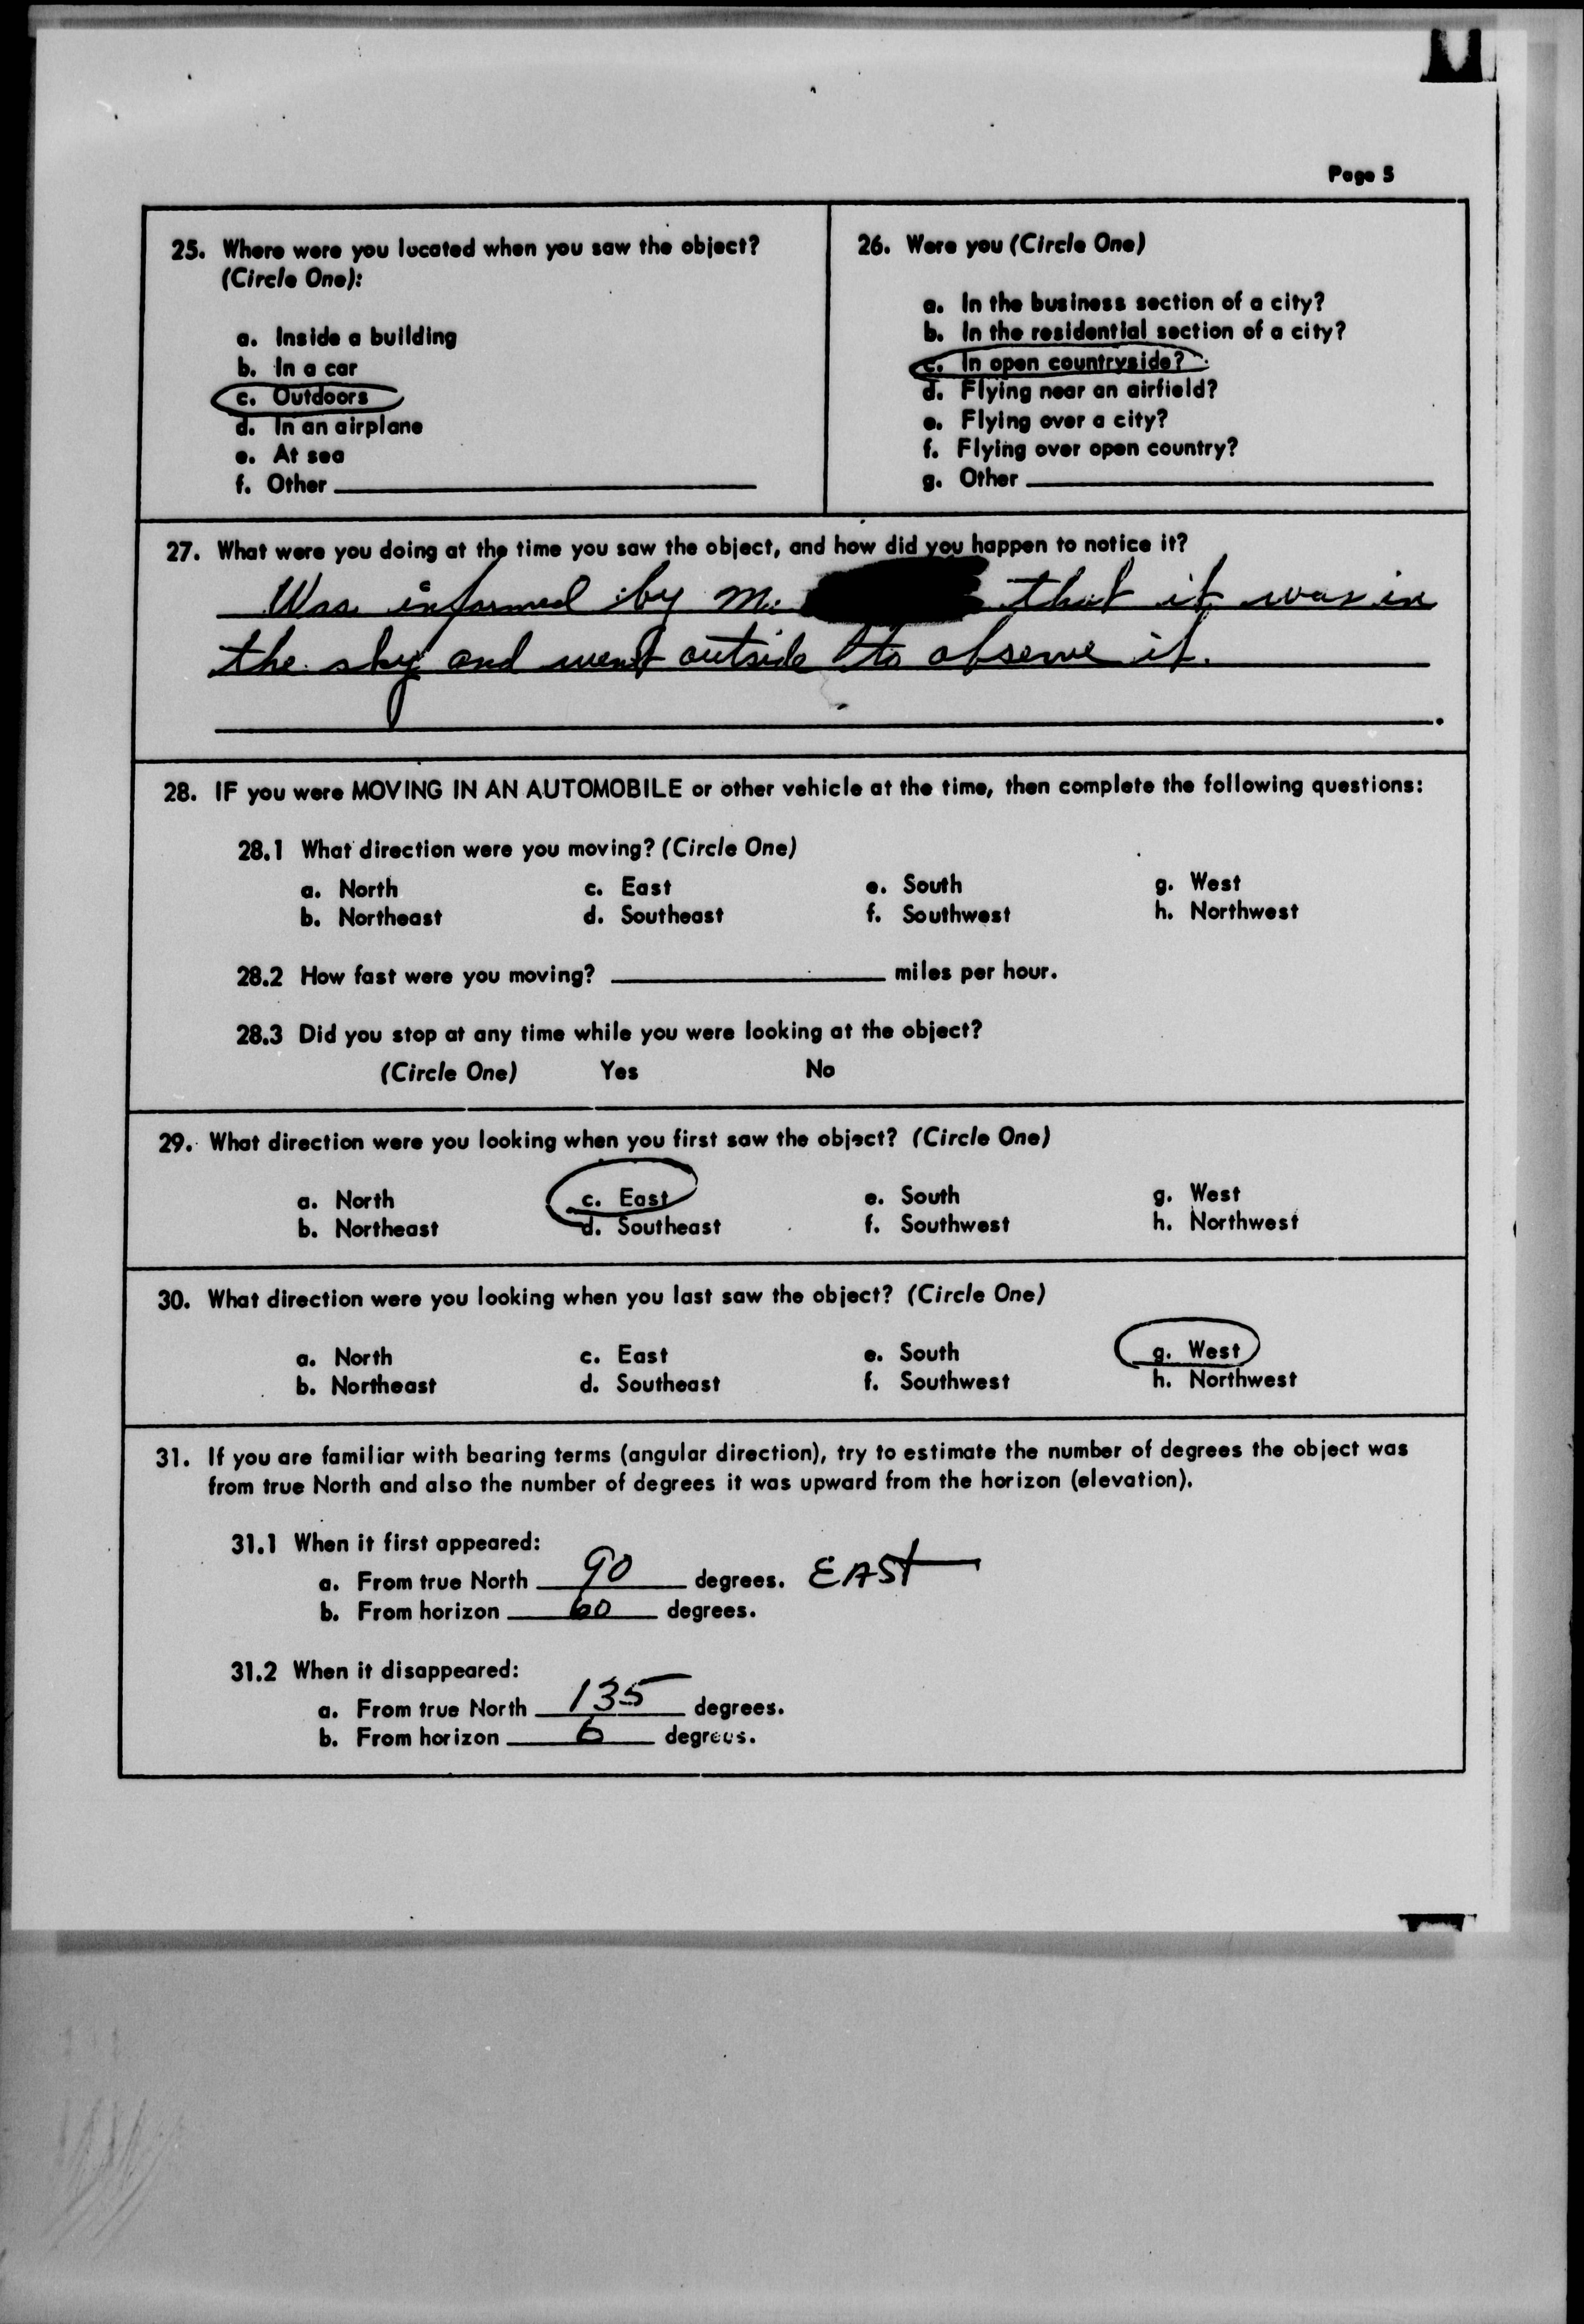 Page 5
25. Where were you located when you saw the object?
(Circle One):
a. Inside a building
b. In a car
c. Outdoors
d. In an airplane
e. At sea
f. Other
26. Were you (Circle One)
a. In the business section of a city?
b. In the residential section of a city?
c. In open countryside?
d. Flying near an airfield?
e. Flying over a city?
f. Flying over open country?
g. Other
27. What were you doing at the time you saw the object, and how did you happen to notice it?
Was informed by Mr. that it was in
the sky and went outside to observe it.
28. IF you were MOVING IN AN AUTOMOBILE or other vehicle at the time, then complete the following questions:
28.1 What direction were you moving? (Circle One)
a. North c. East e. South g. West
b. Northeast d. Southeast f. Southwest h. Northwest
28.2 How fast were you moving? miles per hour.
28.3 Did you stop at any time while you were looking at the object?
(Circle One) Yes No
29. What direction were you looking when you first saw the object? (Circle One)
a. North c. East e. South g. West
b. Northeast d. Southeast f. Southwest h. Northwest
30. What direction were you looking when you last saw the object? (Circle One)
a. North c. East e. South g. West
b. Northeast d. Southeast f. Southwest h. Northwest
31. If you are familiar with bearing terms (angular direction), try to estimate the number of degrees the object was
from true North and also the number of degrees it was upward from the horizon (elevation).
31.1 When it first appeared:
a. From true North 90 degrees. EAST
b. From horizon 60 degrees.
31.2 When it disappeared:
a. From true North 135 degrees.
b. From horizon 6 degrees.